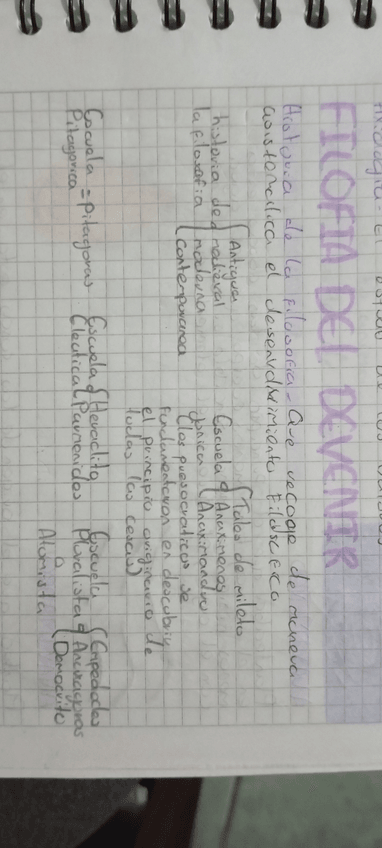 FILOFIA DEL DEVENIR
Historia de la filosofia - Que recoge de manera
sistematica el desenvolvimiento filosofico
historia de la filosofia { Antigua
medieval
moderna
contemporanea
Escuela jonica { Tales de mileto
Anaximenes
Anaximandro
(los presocraticos se
fundamentaron en descubrir
el principio originario de
todas las cosas)
Escuela Pitagorica = Pitagoras
Escuela Eleatica { Heraclito
Parmenides
Escuela Pluralista o Atomista { Empedocles
Anaxagoras
Democrito